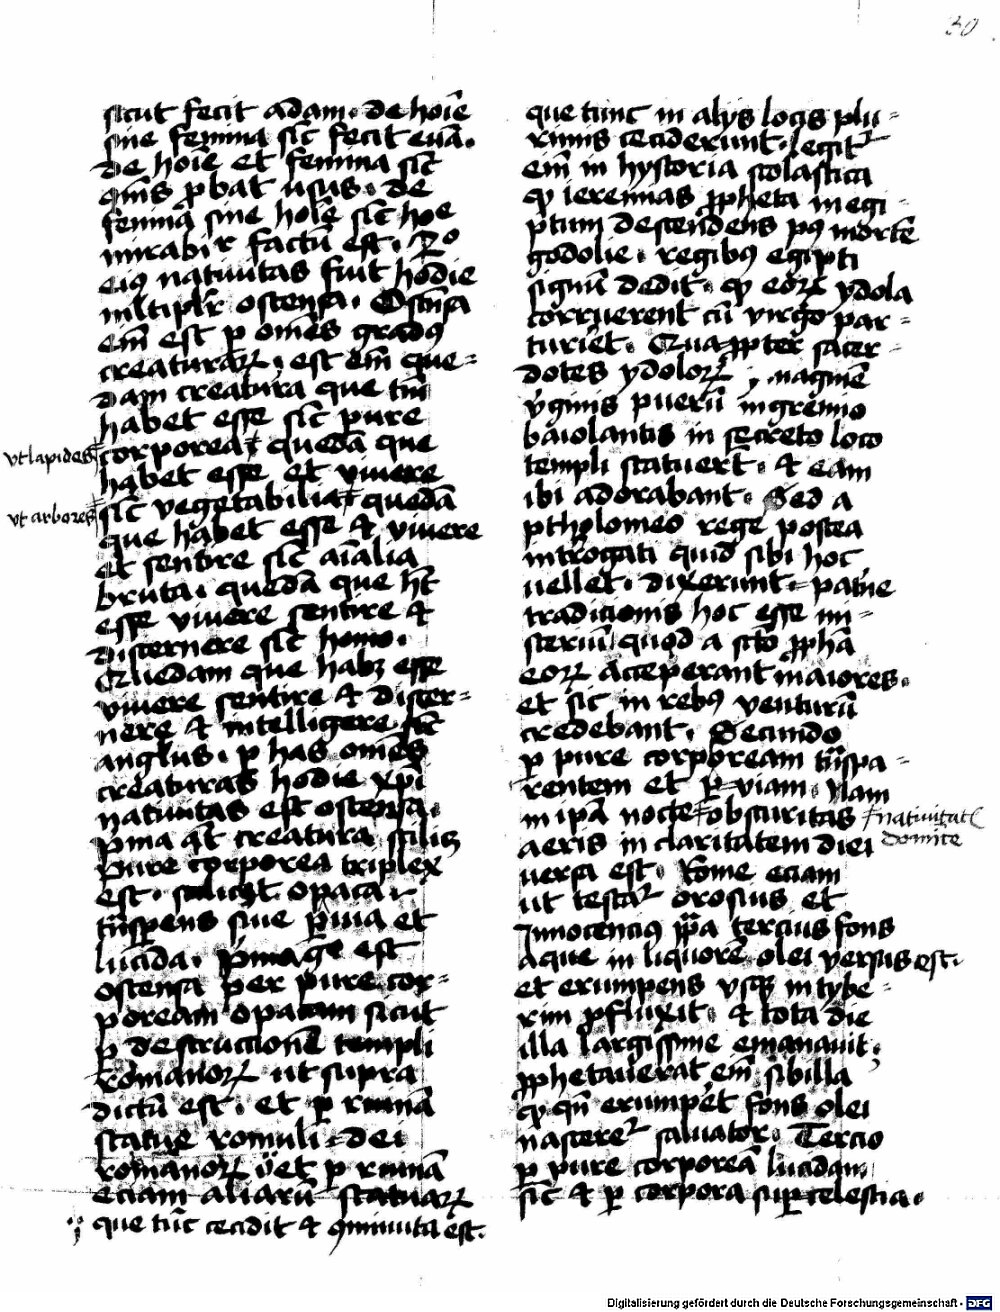 30
sicut fecit adam. de hoīe
sine femina sic̄ fecit euā.
de hoīe et femina sic̄
om̄īs ꝓbat usus. de
feminā sine hoīe sic̄ hoe
mirabir factū est. Ro
eiꝯ natiuitas fuit hodie
mltiplr̄ ostensa. Ostēsa
em̄ est p om̄es gradꝯ
creaturaꝝ, est em̄ que=
dam creatura que tm̄
habet esse sic̄ pure
corporea quedā que
vt lapides
habet esse et vivere
sic̄ vegetabilia quedā
vt arbores
que habet esse & vivere
et sentire sic̄ aīalia
bruta. quedā que hꝫt
esse vivere sentire &
discernere sic̄ homo.
Quedam que habꝫ esse
vivere sentire & discer=
nere & intelligere sic̄
anglus. p has omēs
creaturas hodie xp̄i
natiuitas est ostensa.
pima qͥt creatura scilicꝫ
pure corporea triplex
est. scilicꝫt opaca.
tn̄spens siue ꝑuia et
lucida. pima gͦ est
ostensa per pure cor=
poream opacam sicut
ꝑ destructionē templi
romanoꝝ ut supra
dictū est. et ꝑ ruinā
statue romuli dei
romanoꝝ et ꝑ ruinā
eciam aliarū statuaꝝ
que tūc cecidit & ꝯminuta est.
que tunc in alijs locis plu=
rimis ceciderunt. legitꝛ
em̄ in hystoria scolastica
ꝙ ieremias ꝓpheta in egi=
ptum descendens pꝰ mortē
godolie. regibꝯ egipti
signū dedit. ꝙ eoꝝ ydola
corruerent cū virgo par=
turiet. Quaꝓpter sacer=
dotes ydoloꝝ, maginē
v̄ginis puerū in gremio
baiolantis in secreto loco
templi statuert̄. & eam
ibi adorabant. Sed a
ptholomeo rege postea
introgati quid sibi hoc
vellet. dixerunt paterne
traditionis hoc esse mi=
steriū quod a scto ꝓphā
eoꝝ acceperant maiores.
et sic in rebꝯ venturū
credebant. Secundo
ꝑ pure corpoream tn̄spa=
rentem et ꝑviam. Nam
in ipā nocte obscuritas
natiuitat
domice
aeris in claritatem diei
versa est. Rome eciam
ut testaꝛ orosius et
Innocenciꝯ ppa tercius fons
aque in liquorē olei versus est.
et erumpens vsqꝫ in tybe=
rim ꝓfluxit. & tota die
illa largissime emanauit.
ꝓphetauerat em̄ sibilla
ꝙ qn̄ erumpet fons olei
nascereꝛ saluator. Tercio
ꝑ pure corporeā lucidam
sic̄ & ꝑ corpora supcelestia.
Digitalisierung gefördert durch die Deutsche Forschungsgemeinschaft - DFG